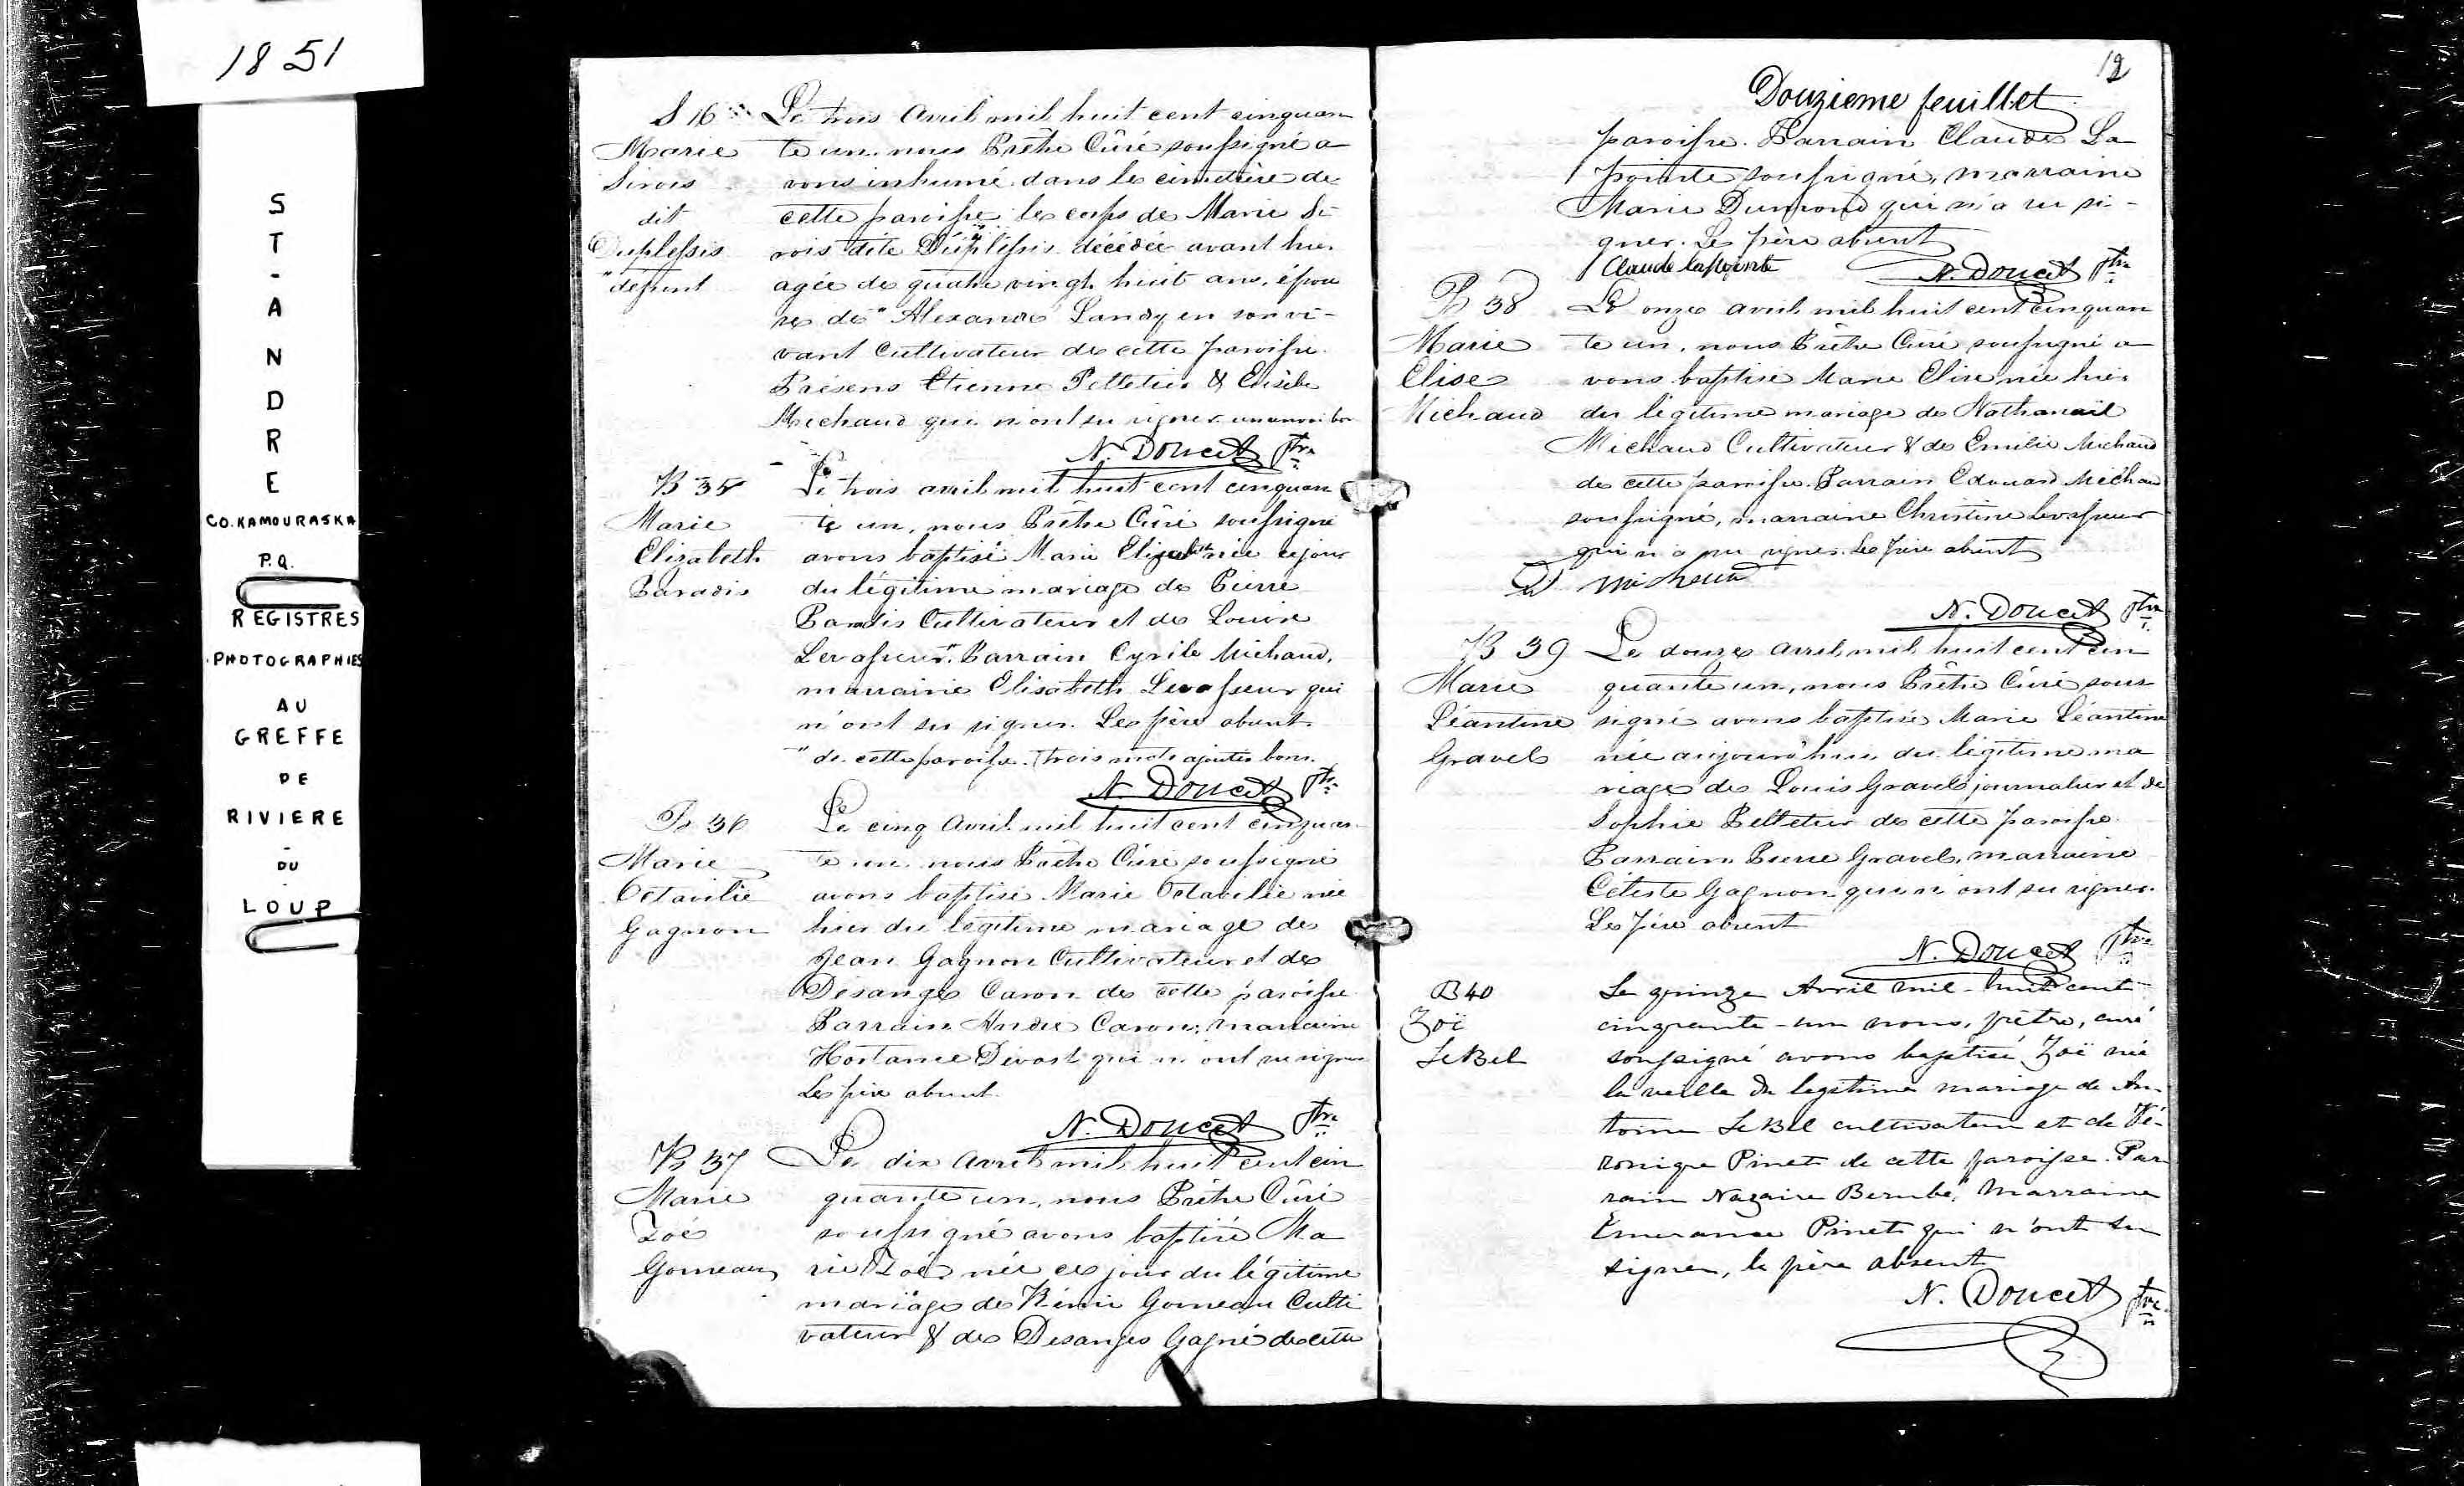 1851
ST-ANDRE
CO. KAMOURASKA
P.Q.
REGISTRES
PHOTOGRAPHIES
AU
GREFFE
DE
RIVIERE
DU
LOUP
S 16
Marie
Sirois
dit
Duplessis
"défunt
Le trois Avril mil huit cent cinquan
te un. nous Prêtre Curé soussigné a
vons inhumé dans le cimetière de
cette paroisse le corps de Marie Si-
rois dite Duplessis décédée avant hier
agée de quatre vingt huit ans, épou
se de " Alexandre Landry en son vi-
vant Cultivateur de cette paroisse.
Présens Etienne Pelletier & Eusèbe
Michaud qui n'ont su signer un renvoi bon
N. Doucet Ptre
B 35
Marie
Elizabeth
Paradis
Le trois avril mil huit cent cinquan
te un, nous Prêtre Curé soussigné
avons baptisé Marie Elizabeth née ce jour
du légitime mariage de Pierre
Paradis Cultivateur et de Louise
Levasseur." Parrain Cyrile Michaud,
marraine Elisabeth Levasseur qui
n'ont su signer. Le père absent.
" de cette paroisse. trois mots ajoutés bons.
N. Doucet Ptre
B 36
Marie
Octavilie
Gagnon
Le cinq Avril mil huit cent cinquan
te un nous Prêtre Curé soussigné
avons baptisé Marie Octavilie née
hier du légitime mariage de
Jean Gagnon Cultivateur et de
Désanges Caron de cette paroisse
Parrain André Caron, marraine
Hortance Devost qui n'ont su signer
Le père absent.
N. Doucet Ptre
B 37
Marie
Zoé
Gorneau
Le dix Avril mil huit cent cin
quante un, nous Prêtre Curé
soussigné avons baptisé Ma
rie Zoé née ce jour du légitime
mariage de Rémi Gorneau Culti
vateur & de Desanges Gagné de cette
12
Douzieme feuillet
paroisse. Parrain Claude La
pointe soussigné, marraine
Marie Dumond qui n'a su si-
gner. Le père absent
Claude lapointe
N. Doucet Ptre
B 38
Marie
Elise
Michaud
Le onze avril mil huit cent cinquan
te un, nous Prêtre Curé soussigné a
vons baptisé Marie Elise née hier
du légitime mariage de Nathanaël
Michaud Cultivateur & de Emilie Michaud
de cette paroisse. Parrain Edouard Michaud
soussigné, marraine Christine Levasseur
qui n'a su signer. Le père absent
Ed Michaud
N. Doucet Ptre
B 39
Marie
Léantine
Gravel
Le douze Avril mil huit cent cin
quante un, nous Prêtre Curé sous
signé avons baptisé Marie Léantine
née aujourd'hui du légitime ma
riage de Louis Gravel journalier et de
Sophie Pelletier de cette paroisse.
Parrain Pierre Gravel, marraine
Céleste Gagnon qui n'ont su signer.
Le père absent
N. Doucet Ptre
B 40
Zoë
LeBel
Le quinze Avril mil-huit cent
cinquante-un nous, prêtre, curé
soussigné avons baptisé Zoë née
la veille du legitime mariage de An-
toine LeBel cultivateur et de Vé-
ronique Pinet de cette paroisse. Par
rain Nazaire Berubé, Marraine
Emerance Pinet qui n'ont su
signer, le père absent
N. Doucet Ptre